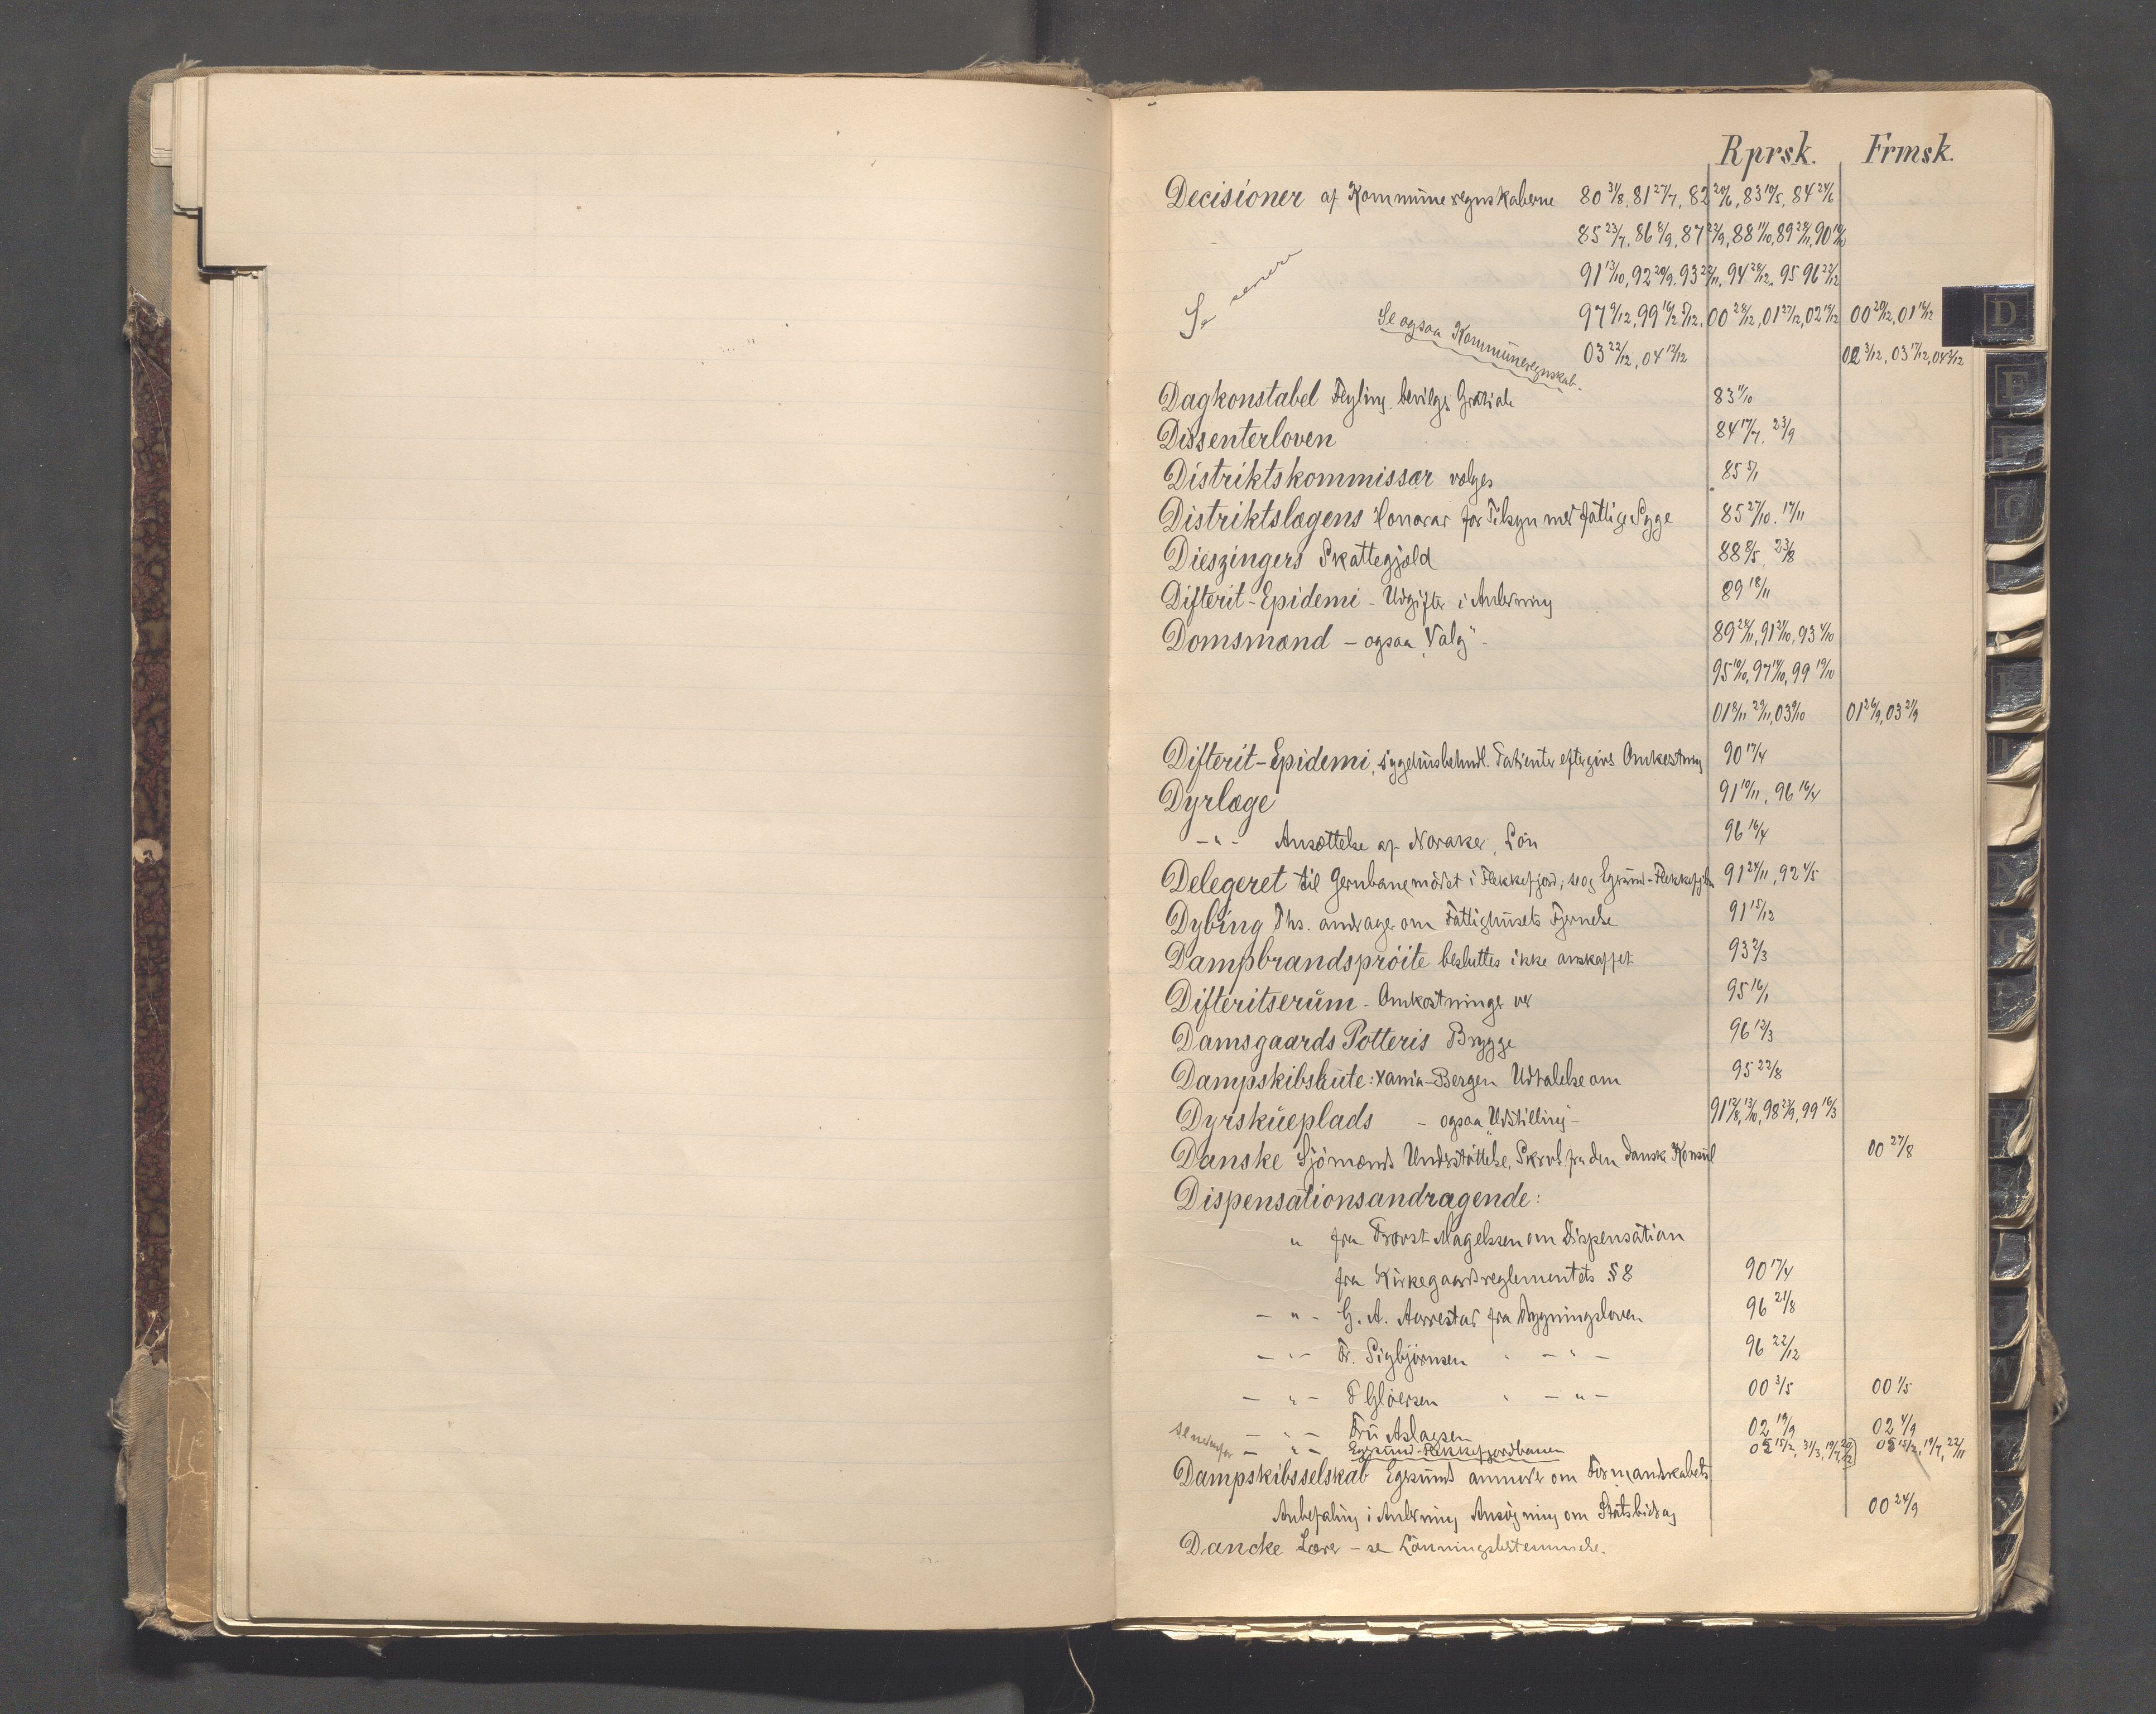 Rprsk. Frmsk.
Decisioner af Kommuneregnskaberne 80 31/8, 81 27/7, 82 20/6, 83 10/5, 84 24/6
85 23/7, 86 8/9, 87 22/9, 88 11/10, 89 28/11, 90 16/10
91 13/10, 92 20/9, 93 22/11, 94 28/12, 95 96 22/12
Se senere
97 9/12, 99 16/2 5/12, 00 28/12, 01 27/12, 02 16/12 00 20/12, 01 16/12
Se ogsaa Kommuneregnskab.
03 22/12, 04 12/12 02 3/12, 03 17/12, 04 2/12
Dagkonstabel Feyling bevilges Gratiale 83 11/10
Dissenterloven 84 17/7, 23/9
Distriktskommissær vælges 85 5/1
Distriktslægens Honorar for Tilsyn med fattige Syge 85 27/10. 17/11
Dieszingers Skattegjæld 88 8/5, 23/8
Difterit-Epidemi - Udgifter i Anledning 89 18/11
Domsmænd - ogsaa "Valg" - 89 28/11, 91 21/10, 93 4/10
95 10/10, 97 14/10, 99 19/10
01 8/11 29/11, 03 9/10 01 26/9, 03 21/9
Difterit-Epidemi, sygehusbehandl. Patienter eftergives Omkostning 90 17/4
Dyrlæge 91 10/11, 96 16/4
-"- Ansættelse af Noraker, Løn 96 16/4
Delegeret til Jernbanemødet i Flekkefjord; se og Egersund-Flekkefjbn 91 24/11, 92 4/5
Dybing Ths. andrager om Fattighusets Fjernelse 91 15/12
Dampbrandsprøite besluttes ikke anskaffet 93 2/3
Difteritserum - Omkostninger ved 95 16/1
Damsgaards Potteris Brygge 96 12/3
Dampskibsrute: Xania-Bergen Udtalelse om 95 22/8
Dyrskueplads - ogsaa "Udstilling" - 91 12/8, 13/10, 98 23/9, 99 16/3
Danske Sjømænds Understøttelse, Skrivl. fra den danske Konsul 00 27/8
Dispensationsandragende:
" fra Provst Magelssen om Dispensation
fra Kirkegaardsreglementets § 8 90 17/4
- " - G. A. Aarrestad fra Bygningsloven 96 21/8
- " - Fr. Sigbjørnsen " - " - 96 22/12
- " - F Gløersen " - " - 00 3/5 00 1/5
- " - Fru Aslagsen 02 19/9 02 4/9
se nedenfor - " - Egersund-Flekkefjordbanen 05 15/2, 31/3, 19/7, 05 15/2, 19/7, 22/11
Dampskibsselskab Egersund anmoder om Formandskabets
Anbefaling i Anledning Ansøgning om Statsbidrag 00 24/9
Dancke Lærer - se Lønningsbestemmelse.
D
E
F
G
K
N
P
W